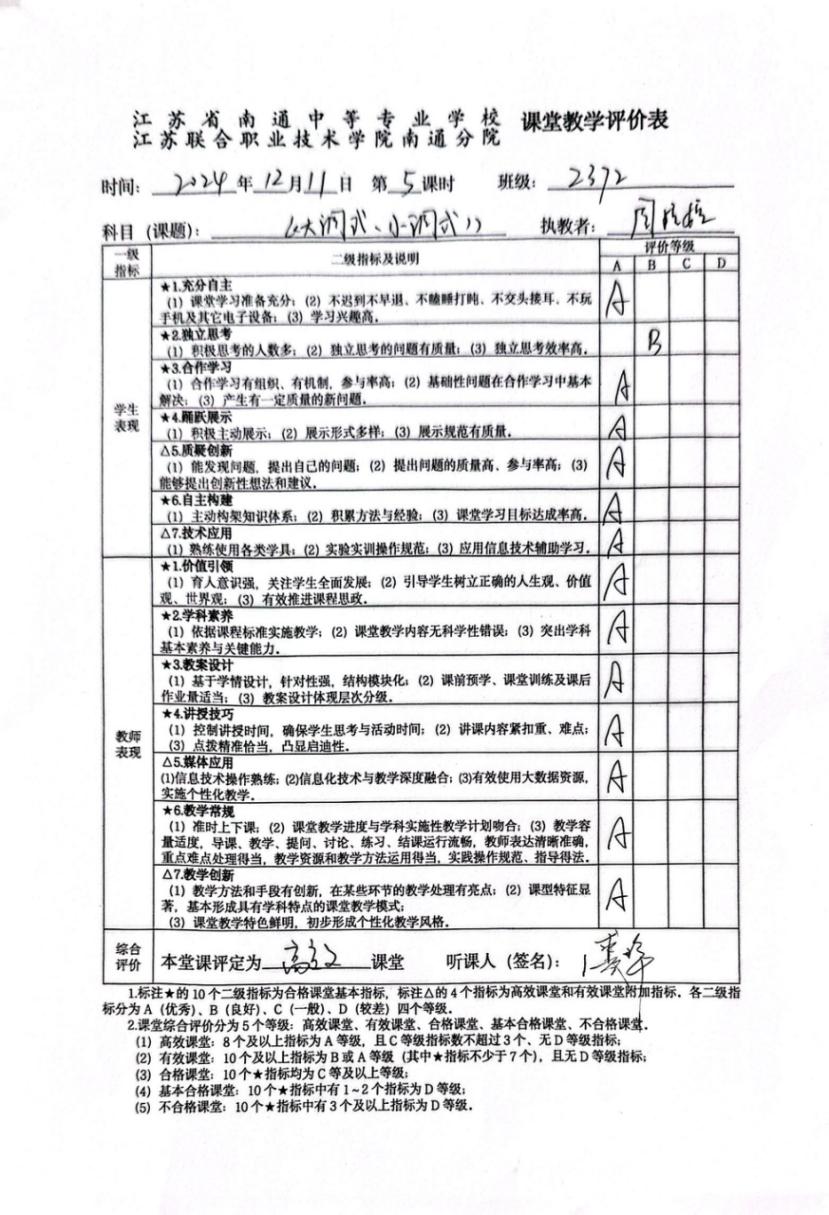 江苏省南通中等专业学校
江苏联合职业技术学院南通分院 课堂教学评价表
时间: 2024 年 12 月 11 日 第 5 课时 班级: 2372
科目 (课题): 《大调式、小调式》 执教者: 周
一级指标 二级指标及说明 评价等级
A B C D
学生表现
★1.充分自主
(1) 课堂学习准备充分; (2) 不迟到不早退、不瞌睡打盹、不交头接耳、不玩
手机及其它电子设备; (3) 学习兴趣高. A
★2.独立思考
(1) 积极思考的人数多; (2) 独立思考的问题有质量; (3) 独立思考效率高. B
★3.合作学习
(1) 合作学习有组织、有机制, 参与率高; (2) 基础性问题在合作学习中基本
解决; (3) 产生有一定质量的新问题. A
★4.踊跃展示
(1) 积极主动展示; (2) 展示形式多样; (3) 展示规范有质量. A
△5.质疑创新
(1) 能发现问题, 提出自己的问题; (2) 提出问题的质量高、参与率高; (3)
能够提出创新性想法和建议. A
★6.自主构建
(1) 主动构架知识体系; (2) 积累方法与经验; (3) 课堂学习目标达成率高. A
△7.技术应用
(1) 熟练使用各类学具; (2) 实验实训操作规范; (3) 应用信息技术辅助学习. A
教师表现
★1.价值引领
(1) 育人意识强, 关注学生全面发展; (2) 引导学生树立正确的人生观、价值
观、世界观; (3) 有效推进课程思政. A
★2.学科素养
(1) 依据课程标准实施教学; (2) 课堂教学内容无科学性错误; (3) 突出学科
基本素养与关键能力. A
★3.教案设计
(1) 基于学情设计, 针对性强, 结构模块化; (2) 课前预学、课堂训练及课后
作业量适当; (3) 教案设计体现层次分级. A
★4.讲授技巧
(1) 控制讲授时间, 确保学生思考与活动时间; (2) 讲课内容紧扣重、难点;
(3) 点拨精准恰当, 凸显启迪性. A
△5.媒体应用
(1)信息技术操作熟练; (2)信息化技术与教学深度融合; (3)有效使用大数据资源,
实施个性化教学. A
★6.教学常规
(1) 准时上下课; (2) 课堂教学进度与学科实施性教学计划吻合; (3) 教学容
量适度, 导课、教学、提问、讨论、练习、结课运行流畅, 教师表达清晰准确,
重点难点处理得当, 教学资源和教学方法运用得当, 实践操作规范、指导得法. A
△7.教学创新
(1) 教学方法和手段有创新, 在某些环节的教学处理有亮点; (2) 课型特征显
著, 基本形成具有学科特点的课堂教学模式;
(3) 课堂教学特色鲜明, 初步形成个性化教学风格. A
综合评价 本堂课评定为 高效 课堂 听课人 (签名):
1.标注★的 10 个二级指标为合格课堂基本指标, 标注△的 4 个指标为高效课堂和有效课堂附加指标. 各二级指
标分为 A (优秀)、B (良好)、C (一般)、D (较差) 四个等级.
2.课堂综合评价分为 5 个等级: 高效课堂、有效课堂、合格课堂、基本合格课堂、不合格课堂.
(1) 高效课堂: 8 个及以上指标为 A 等级, 且 C 等级指标数不超过 3 个、无 D 等级指标;
(2) 有效课堂: 10 个及以上指标为 B 或 A 等级 (其中★指标不少于 7 个), 且无 D 等级指标;
(3) 合格课堂: 10 个★指标均为 C 等及以上等级;
(4) 基本合格课堂: 10 个★指标中有 1~2 个指标为 D 等级;
(5) 不合格课堂: 10 个★指标中有 3 个及以上指标为 D 等级.